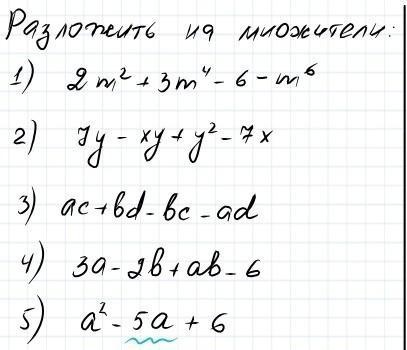 Разложить на множители:
1) 2m² + 3m⁴ - 6 - m⁶
2) 7y - xy + y² - 7x
3) ac + bd - bc - ad
4) 3a - 2b + ab - 6
5) a² - 5a + 6